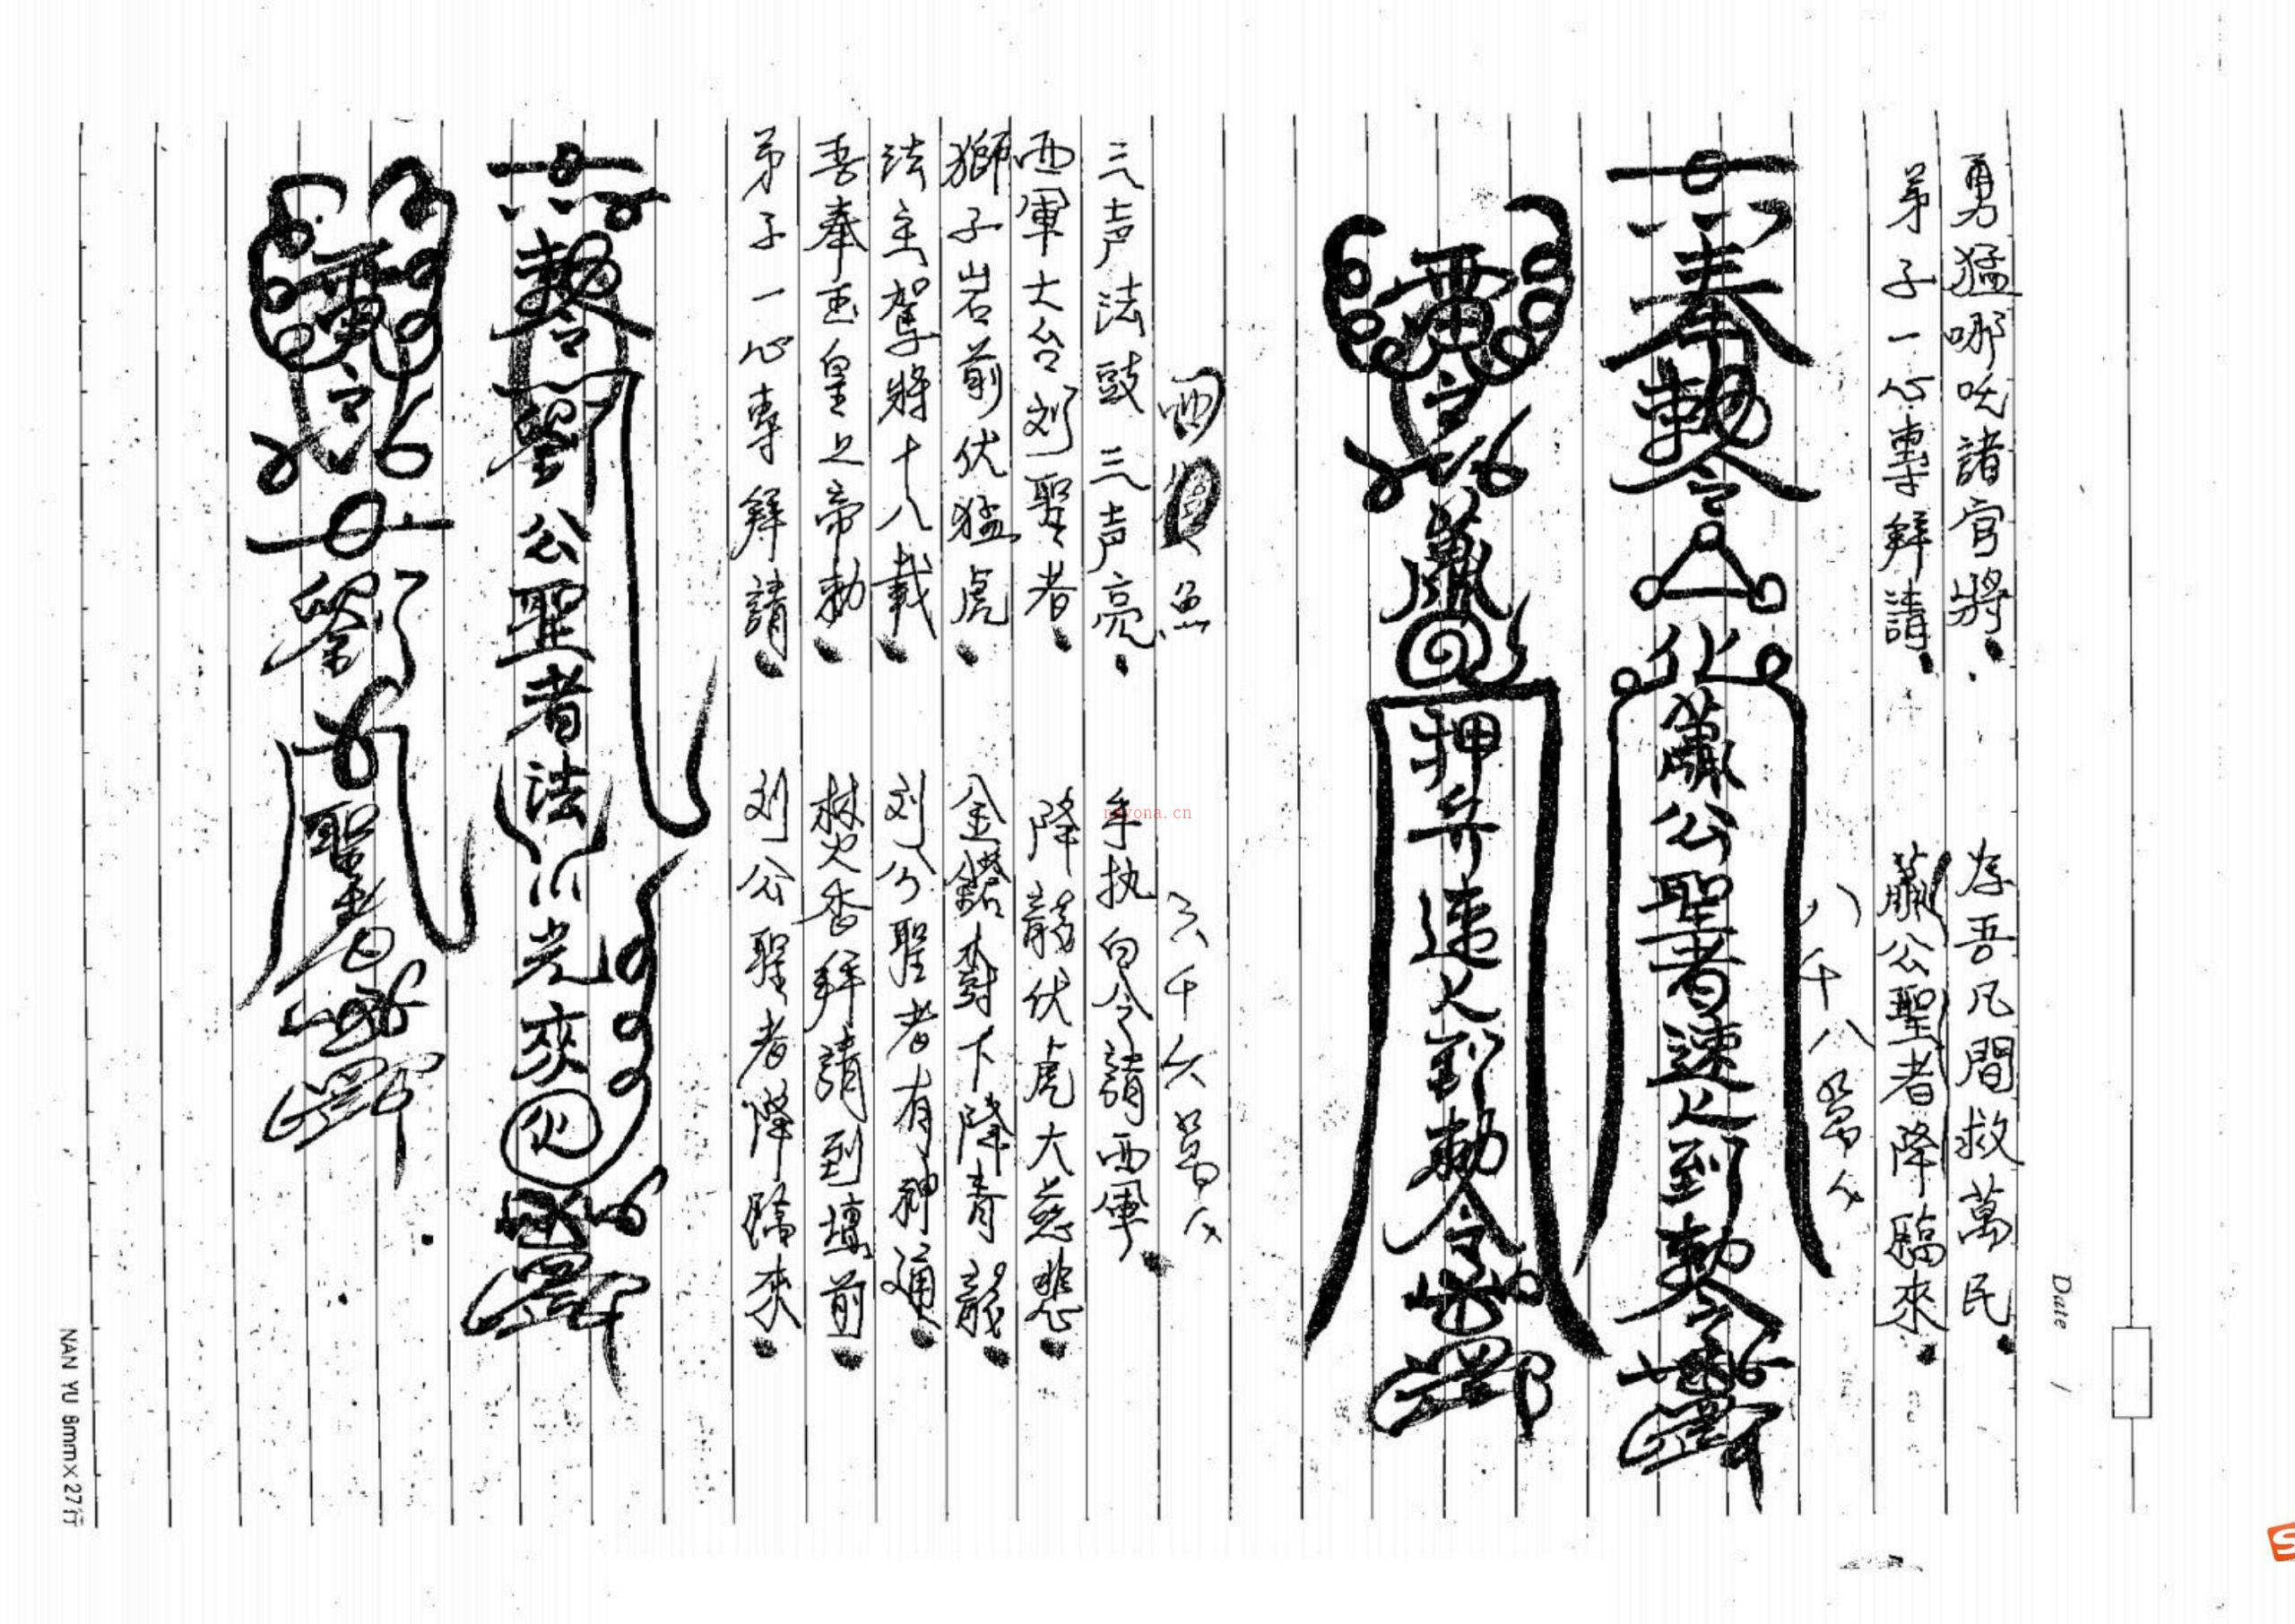 Date /
勇猛哪吒諸官將 存吾凡間救萬民
弟子一心專拜請 蕭公聖者降臨來
八千八萬
奉勅令
化蕭公聖者速人到勅令
雷令
蕭
押兵速人到勅令
西 魚 六千六萬
三声法鼓三声亮 手执白令請西軍
西軍大台刘聖者 降龍伏虎大慈悲
獅子岩前伏猛虎 金鎧 下降青龍
法主駕將十八載 刘公聖者有神通
吾奉玉皇上帝勅 焚香拜請到壇前
弟子一心專拜請 刘公聖者降臨來
勅令劉公聖者法光來化
雷令
劉聖者
NAN YU 8mm×27行
nayona.cn